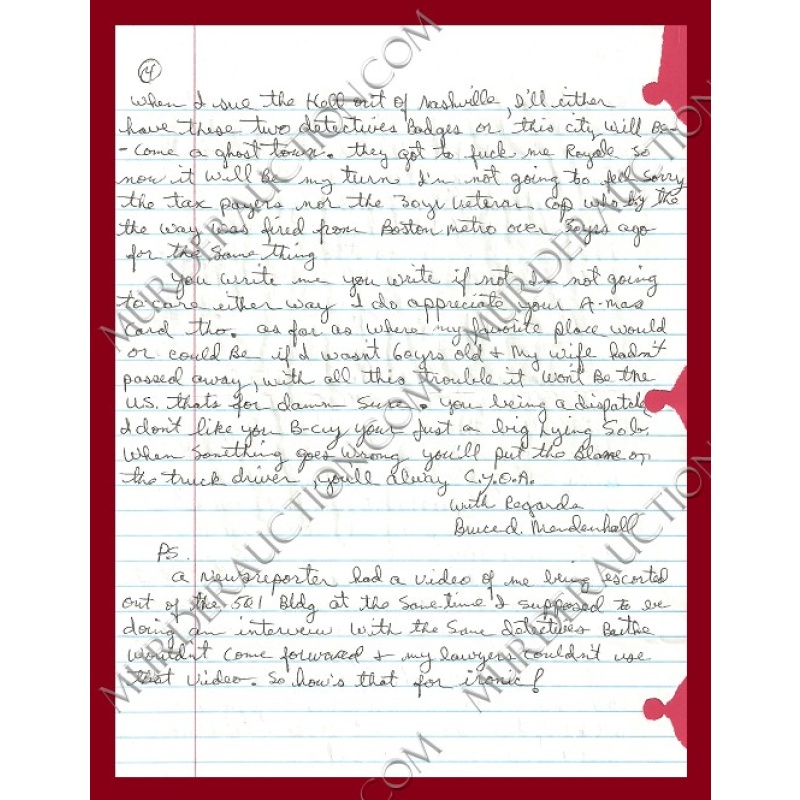 4
When I sue the Hell out of Nashville, I'll either
have these two detectives Badges or this city will Be-
-come a ghost town. they got to fuck me Royale so
now it will Be my turn I'm not going to feel sorry
the tax payers nor the 30yr veteran cop who by the
the way was fired from Boston metro over 30yrs ago
for the Same thing
You write me you write if not I'm not going
to care either way I do appreciate your X-mas
Card tho. as far as where my favorite place would
or could Be if I wasn't 60yrs old + My wife hadn't
passed away, with all this trouble it won't Be the
US. thats for damn Sure. you being a dispatch
I don't like you B-cuz your Just a big Lying S.o.b.
When Somthing goes wrong you'll put the Blame on
the truck driver, you'll alway C.Y.O.A.
With Regards
Bruce d. Mendenhall
PS.
a Newsreporter had a video of me being escorted
out of the 5&1 Bldg at the Same time I supposed to be
doing an interview With the Same detectives
Wouldn't Come forward + my lawyers couldn't use
that Video. So how's that for ironic!
MURDERAUCTION.COM
MURDERAUCTION.COM
MURDERAUCTION.COM
MURDERAUCTION.COM
MURDERAUCTION.COM
MURDERAUCTION.COM